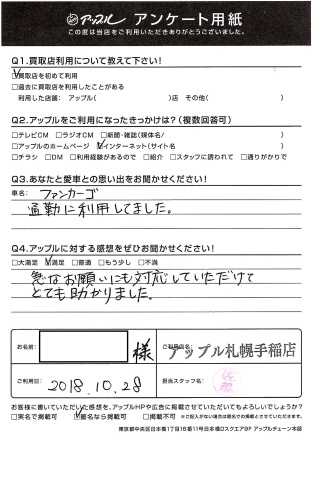 アップル アンケート用紙
この度は当店をご利用いただきありがとうございました。
Q1.買取店利用について教えて下さい!
☑買取店を初めて利用
□過去に買取店を利用したことがある
利用した店舗: アップル( )店 その他( )
Q2.アップルをご利用になったきっかけは?(複数回答可)
□テレビCM □ラジオCM □新聞・雑誌(媒体名/ )
□アップルのホームページ ☑インターネット(サイト名 )
□チラシ □DM □利用経験があるので □紹介 □スタッフに誘われて □通りがかりで
Q3.あなたと愛車との思い出をお聞かせください!
車名: ファンカーゴ
通勤に利用してました。
Q4.アップルに対する感想をぜひお聞かせください!
□大満足 ☑満足 □普通 □もう少し □不満
急なお願いにも対応していただけて
とても助かりました。
お名前: 様
ご利用店名: アップル札幌手稲店
ご利用日: 2018.10.28
担当スタッフ名:
お客様に書いていただいた感想を、アップルHPや広告に掲載させていただいてもよろしいでしょうか?
□実名で掲載可 ☑匿名なら掲載可 □掲載不可 ※ご記入がない場合は匿名での掲載とさせていただきます。
東京都中央区日本橋1丁目16番11号日本橋Dスクエア5F アップルチェーン本部